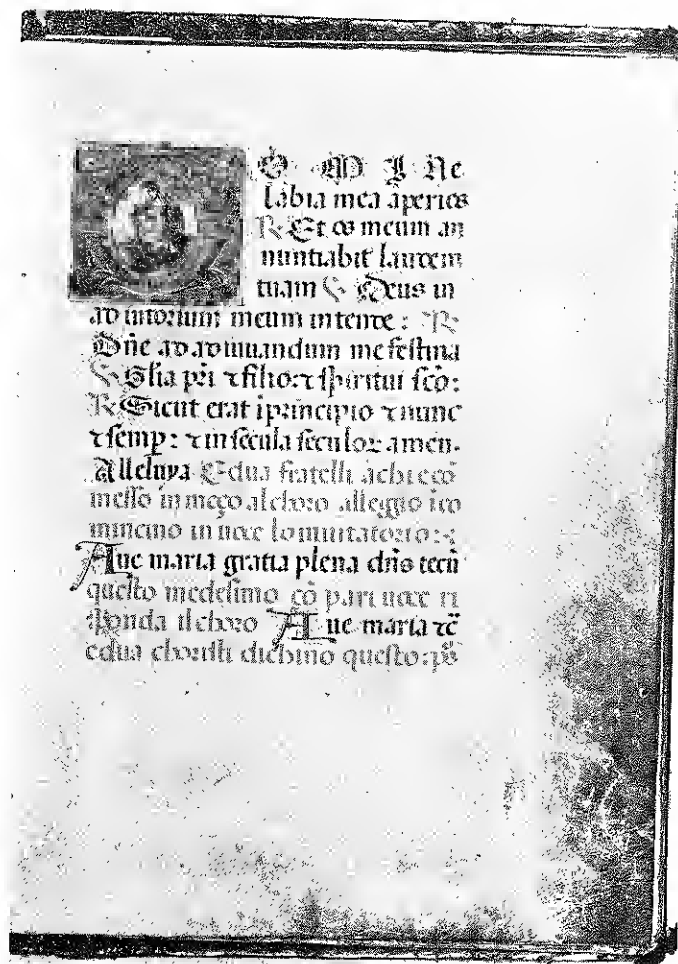 O M I Ne
labia mea aperies
R Et os meum an
nuntiabit laudem
tuam V Deus in
adiutorium meum intende : R
Dñe ad adiuuandum me festina
V Glia pri ⁊ filio: ⁊ spiritui sco:
R Sicut erat i principio ⁊ nunc
⁊ semp: ⁊ in secula seculoꝝ amen.
Alleluya E dua fratelli achi e cō
messo in meço al choro alleggio ico
mincino in uoce lo inuitatorio:
Aue maria gratia plena dñs tecū
questo medesimo cō pari uoce ri
sponda il choro Aue maria ⁊c̄
e dua choristi dichino questo: ps̄